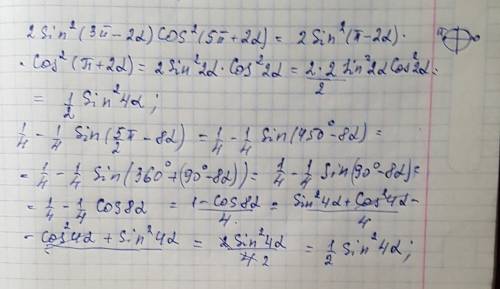 2 Sin²(3π-2α) Cos²(5π+2α) = 2 Sin²(π-2α)·
· Cos²(π+2α) = 2 Sin²2α · Cos²2α = 2·2 Sin²2α Cos²2α/2 =
= 1/2 Sin²4α;
1/4 - 1/4 Sin(5/2π - 8α) = 1/4 - 1/4 Sin(450°-8α) =
= 1/4 - 1/4 Sin(360°+(90°-8α)) = 1/4 - 1/4 Sin(90°-8α) =
= 1/4 - 1/4 Cos8α = 1-Cos8α/4 = Sin²4α + Cos²4α -/4
- Cos²4α + Sin²4α = 2 Sin²4α/4 2 = 1/2 Sin²4α;